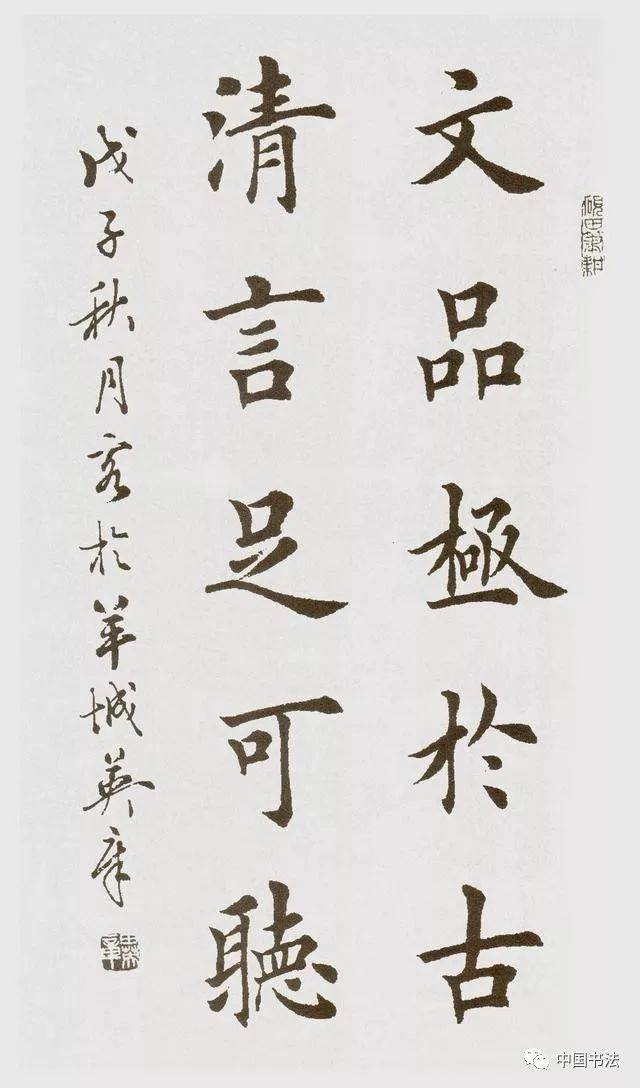 文品極於古
清言足可聽
戊子秋月客於羊城英章
中国书法